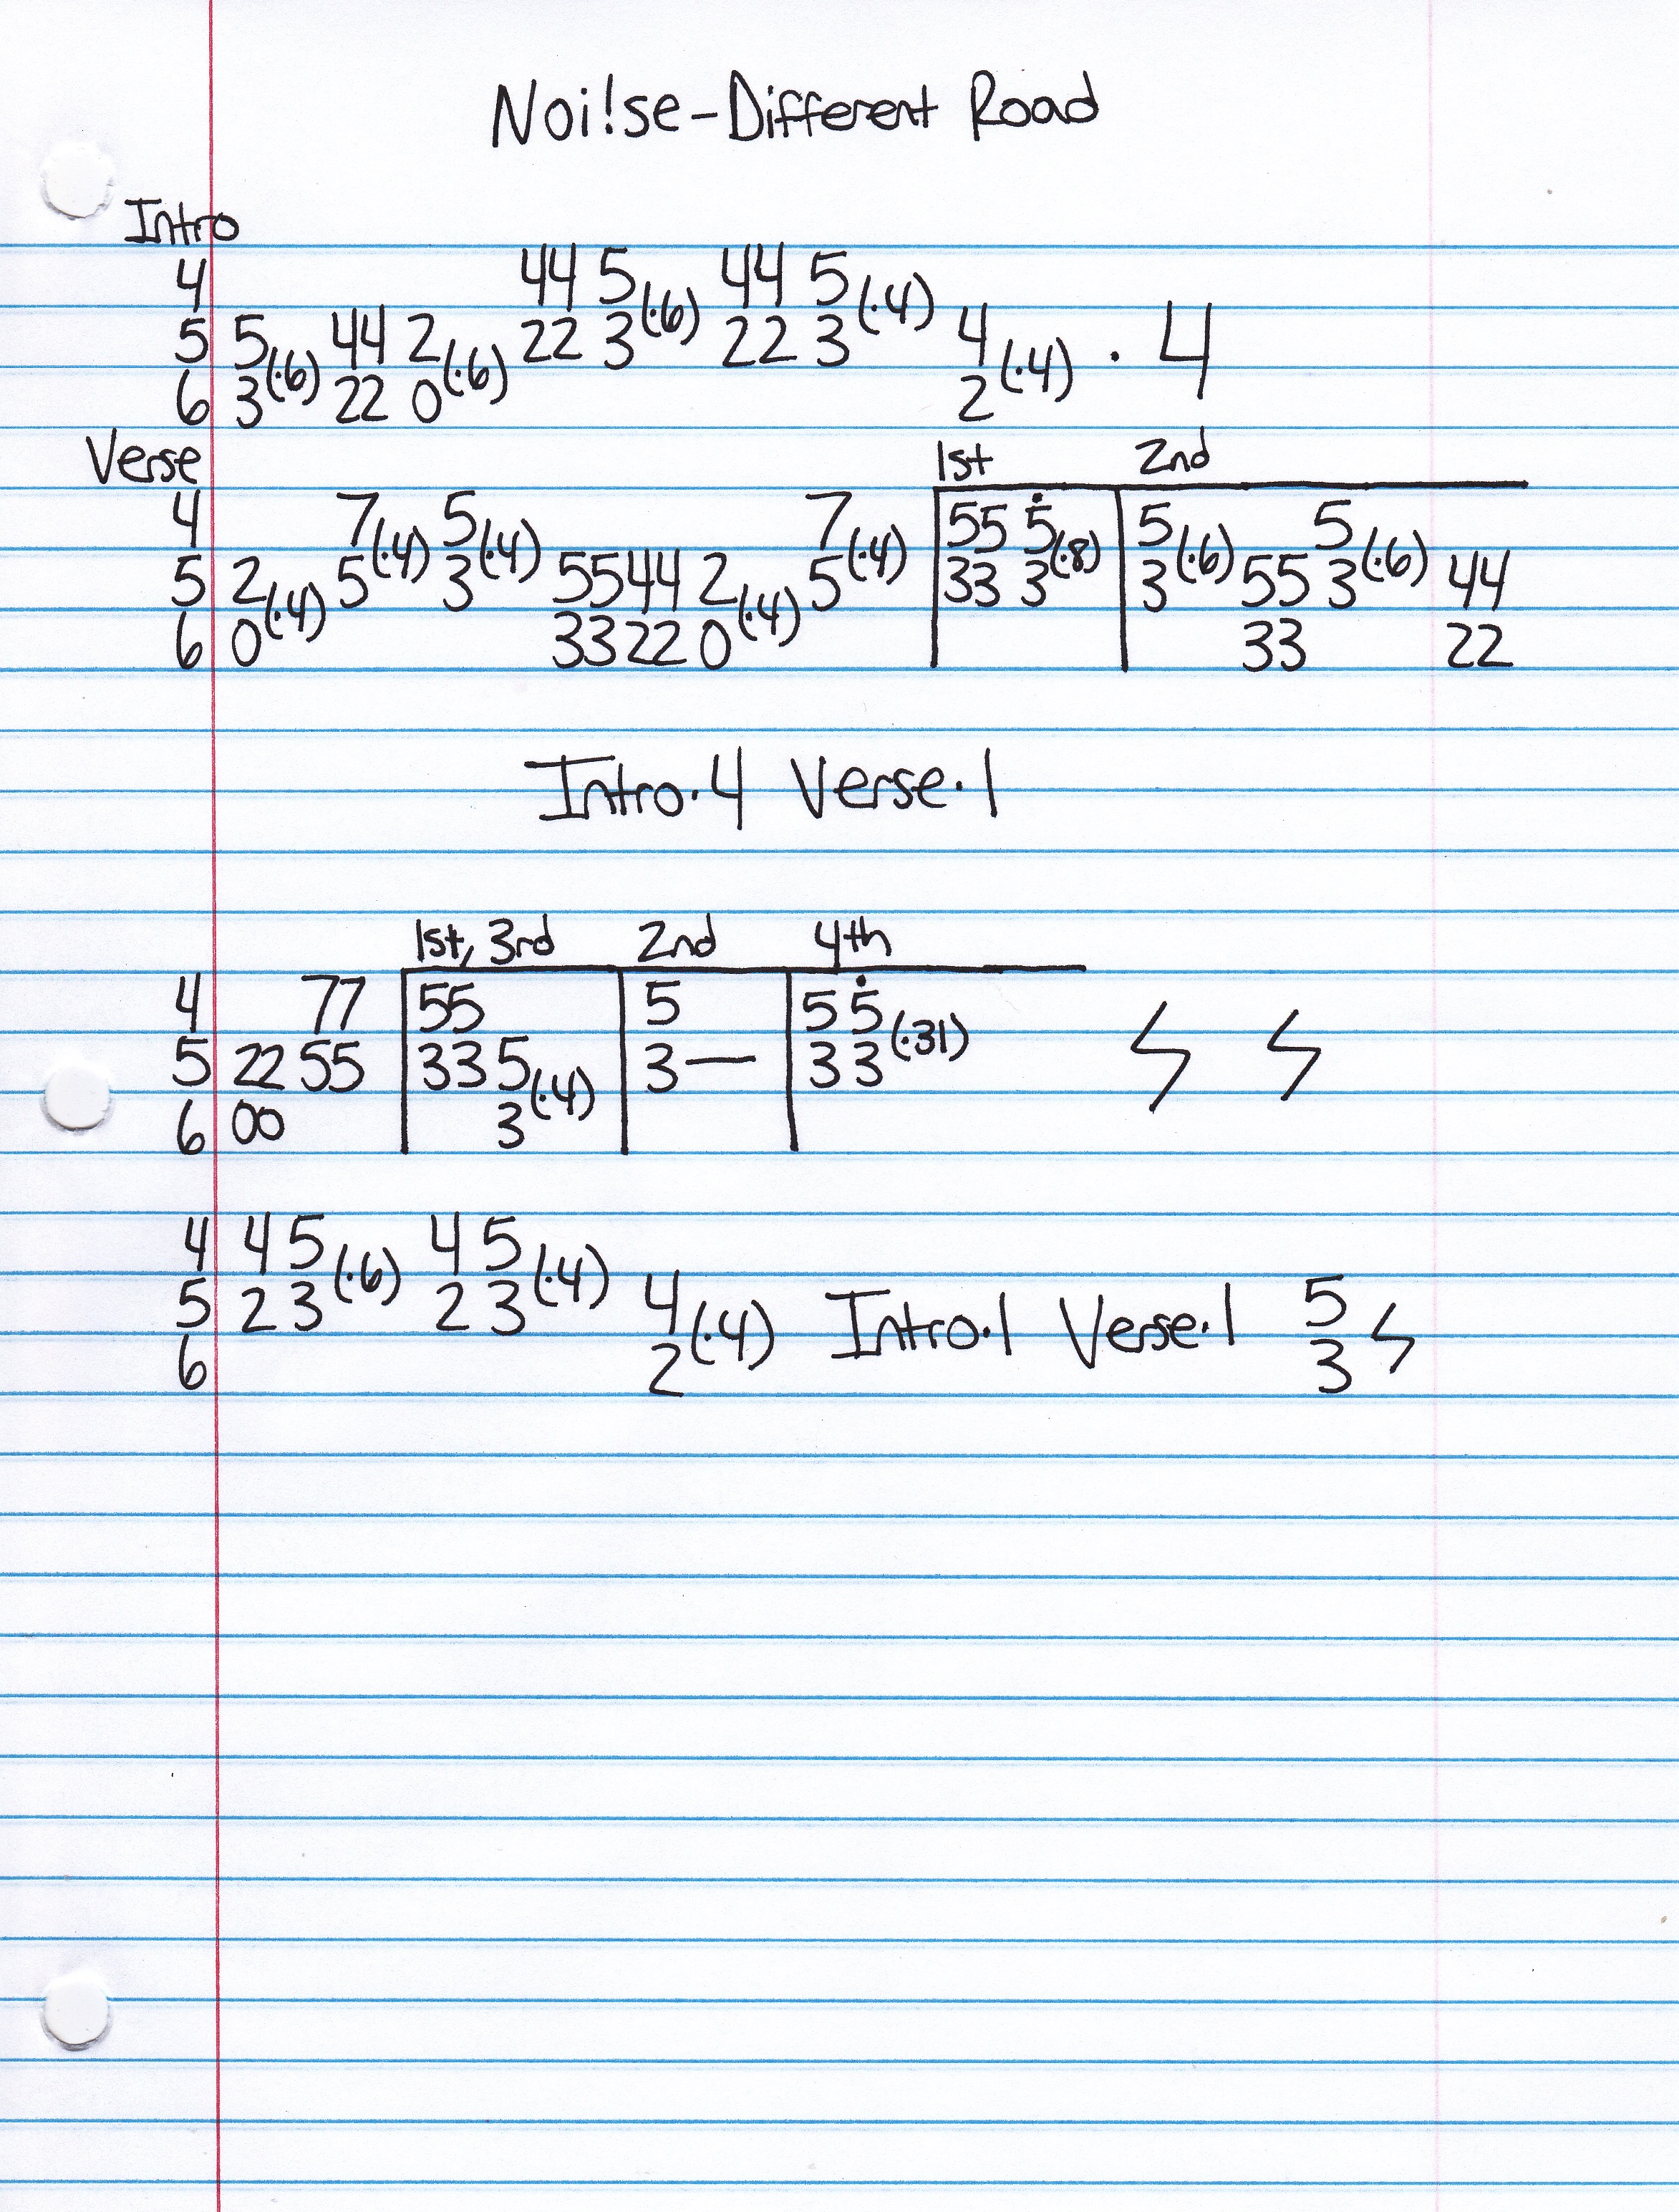 Noi!se-Different Road
Intro
4 44 5(·6) 44 5(·4)
5 5(·6) 44 2(·6) 22 3 22 3 4(·4) · 4
6 3 22 0 2
Verse 1st 2nd
4 7(·4) 5(·4) 7(·4) 55 5(·8) 5(·6) 5(·6)
5 2(·4) 5 3 55 44 2(·4) 5 33 3 3 55 3 44
6 0 33 22 0 33 22
Intro·4 Verse·1
1st, 3rd 2nd 4th
4 77 55 5 5 5(·31)
5 22 55 33 5(·4) 3— 3 3
6 00 3
4 4 5(·6) 4 5(·4)
5 2 3 2 3 4(·4) Intro·1 Verse·1 5
6 2 3